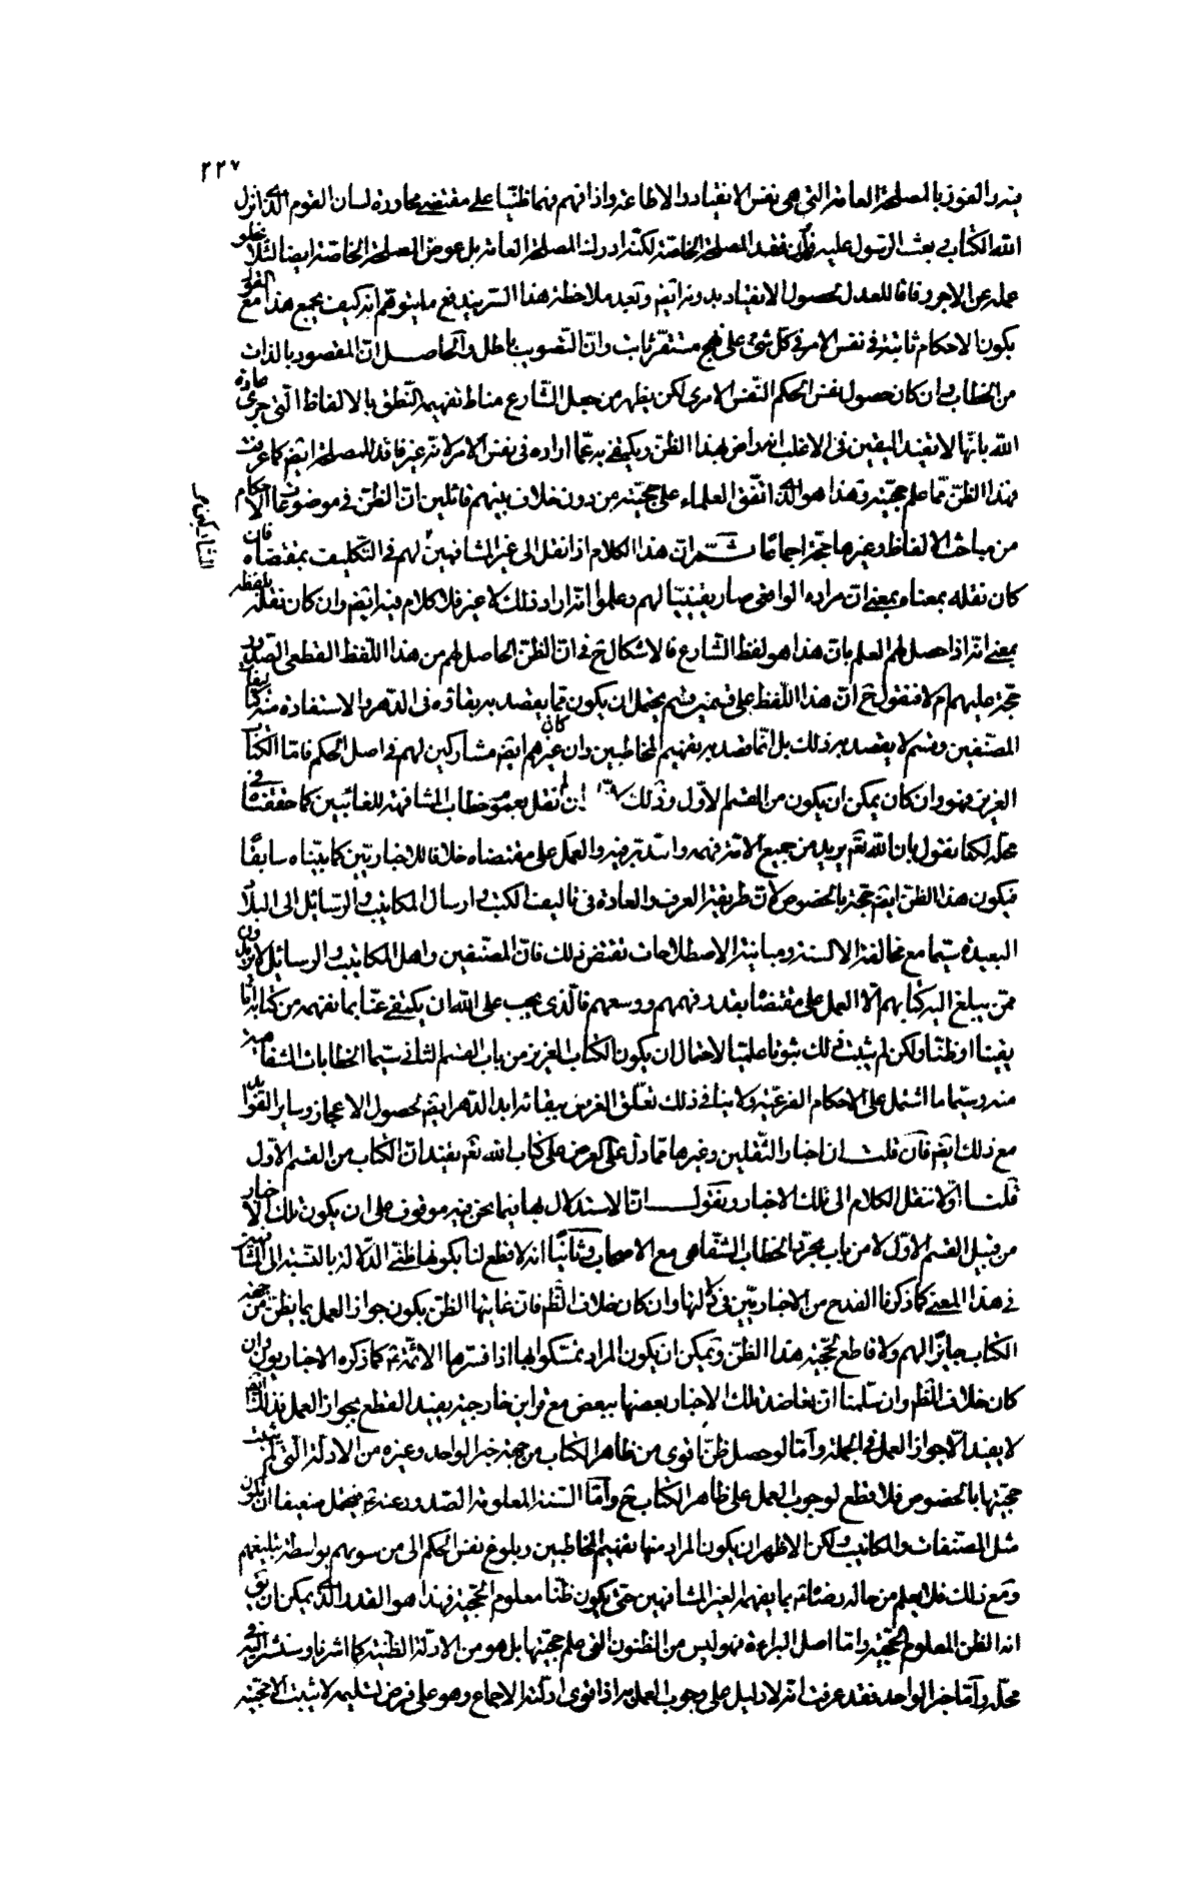 ٢٢٧
فيه والفوز بالمصلحة العامة التي هي نفس الانقياد والاطاعة واذا فهم فهما ظنيّا على مقتضى محاورة لسان القوم الذى انزل
الله الكتاب بعث الرسول عليه فان فقد المصلحة الخاصّة لكنّه ادرك المصلحة العامة بل عوض المصلحة الخاصّة ايضا لئلا يخلو
عمله عن الاجر وفاقا للعدل لحصول الانقياد بدونه ايضم وبعد ملاحظة هذا السّر يندفع ما يتوهّم انه كيف يجمع هذا مع القول
بكون الاحكام ثابتة في نفس الامر في كلّ شئ على نهج مستقرّ ثابت وانّ التصويب باطل والحاصل ان المقصود بالذات
من الخطاب وان كان حصول نفس الحكم النّفس الامرى لكن يظهر من جعل الشّارع مناط تفهيمه النّطق بالالفاظ التي جرى عادة
الله بانّها لا تفيد اليقين في الاغلب انه راض بهذا الظن ويكتفى به عمّا اراده في نفس الامر لانّه غير فاقد للمصلحة ايضم كما عرفت
فهذا الظنّ ممّا علم حجيّته وهذا هو الّذى اتّفق العلماء على حجيّته من دون خلاف بينهم قائلين انّ الظنّ في موضوعات الاحكام
من مباحث الالفاظ وغيرها حجّة اجماعا ثــم ان هذا الكلام اذا نقل الى غير المشافهين لهم في التّكليف بمقتضاه فان
المشاركين
كان نقله بمعناه بمعنى ان مراده الواقعى صار يقينيّا لهم وعلموا انّه اراد ذلك لا غير فلا كلام فيه ايضم وان كان نقله بلفظه
بمعنى انّه اذا حصل لهم العلم بانّ هذا هو لفظ الشّارع فالاشكال ح في انّ الظنّ الحاصل لهم من هذا اللّفظ القطعى الصّدور
حجّة عليهم ام لا فنقول ح انّ هذا اللّفظ على قسمين قسم يحتمل ان يكون ممّا يقصد به بقاؤه فى الدّهر والاستفادة منه كتأليفات
المصنّفين وقسم لا يقصد به ذلك بل انّما قصد به تفهيم المخاطبين وان كان غيرهم ايضم مشاركين لهم في اصل الحكم فامّا الكتاب
العزيز فهو وان كان يمكن ان يكون من القسم الاوّل وذلك ان لم نقل بعموم خطاب المشافهة للغائبين كما حققناه في
محلّه لكنا نقول بان الله تعم يريد من جميع الامّة فهمه والتدبّر فيه والعمل على مقتضاه خلافا للاخباريّين كما بيّناه سابقا
فيكون هذا الظنّ ايضم حجّة بالخصوص لانّ طريقة العرف والعادة في تاليف الكتب وارسال المكاتيب والرّسائل الى البلاد
البعيدة سيّما مع مخالفة الالسنة ومباينة الاصطلاحات تقتضى ذلك فانّ المصنّفين واهل المكاتيب والرسائل لا يريدون
ممّن يبلغ اليه كتابهم الّا العمل على مقتضاه بقدر فهمهم ووسعهم فالّذى يجب على الله ان يكتفى عنّا بما نفهمه من كتابه امّا
يقينا او ظنّا ولكن لم يثبت ذلك ثبوتا علميّا لاحتمال ان يكون الكتاب العزيز من باب القسم الثانى سيّما الخطابات الشفاهية
منه وسيّما ما اشتمل على الاحكام الفرعيّة ولا ينافى ذلك تعلّق الغرض ببقائه ابد الدّهر ايضم لحصول الاعجاز وساير الفوايد
مع ذلك ايضم فان قلت ان اخبار الثّقلين وغيرها ممّا دلّ على العرض على كتاب الله تعم يفيد انّ الكتاب من القسم الاوّل
قلــت اوّلا ننقل الكلام الى تلك الاخبار ونقول انّ الاستدلال بها فيما نحن فيه موقوف على ان يكون تلك الاخبار
من قبيل القسم الاوّل لا من باب مجرّد الخطاب الشّفاهى مع الاصحاب وثانيا انه لا قطع لنا بكونها ظنّى الدّلالة بالنسبة الى المشافهين
في هذا المعنى كما ذكرنا القدح من الاخباريّين في دلالتها وان كان خلاف الظّم فان غايتها الظن بكون جواز العمل بما يظن من جهة
الكتاب جايزا لهم ولا قاطع لحجيّة هذا الظنّ ويمكن ان يكون المراد تمسّكوا بها اذا فسّرها الائمّة ع كما ذكره الاخباريون وان
كان خلاف الظّم وان سلّمنا انّ تعاضد تلك الاخبار بعضها ببعض مع قراين خارجيّة يفيد القطع بجواز العمل فذلك ايضم
لا يفيد الّا جواز العمل في الجملة وامّا لو حصل ظنّ اقوى من ظاهر الكتاب من جهة خبر الواحد وغيره من الادلّة التي لم يثبت
حجيّتها بالخصوص فلا قطع لوجوب العمل على ظاهر الكتاب ح وامّا السّنة المعلومة الصّدور عنه ع فيحتمل ضعيفا ان يكون
مثل المصنّفات والمكاتيب ولكن الاظهر ان يكون المراد منها تفهيم المخاطبين وبلوغ نفس الحكم الى من سويهم بواسطة تبليغهم
ومع ذلك فلا يعلم من حاله رضاه بما يفهمه الغير المشافهين حتى يكون ظنّا معلوم الحجّية فهذا هو القدر الّذى يمكن ان يق
انه الظن المعلوم الحجّية وامّا اصل البراءة فهو ليس من الظنون التى علم حجيّتها بل هو من الادلّة الظنّية كما اشرنا وسنشير اليه في
محلّه وامّا خبر الواحد فقد عرفت انّه لا دليل على وجوب العمل به اذ اقوى ادلّته الاجماع وهو على فرض تسليمه لا يثبت الا حجيّته